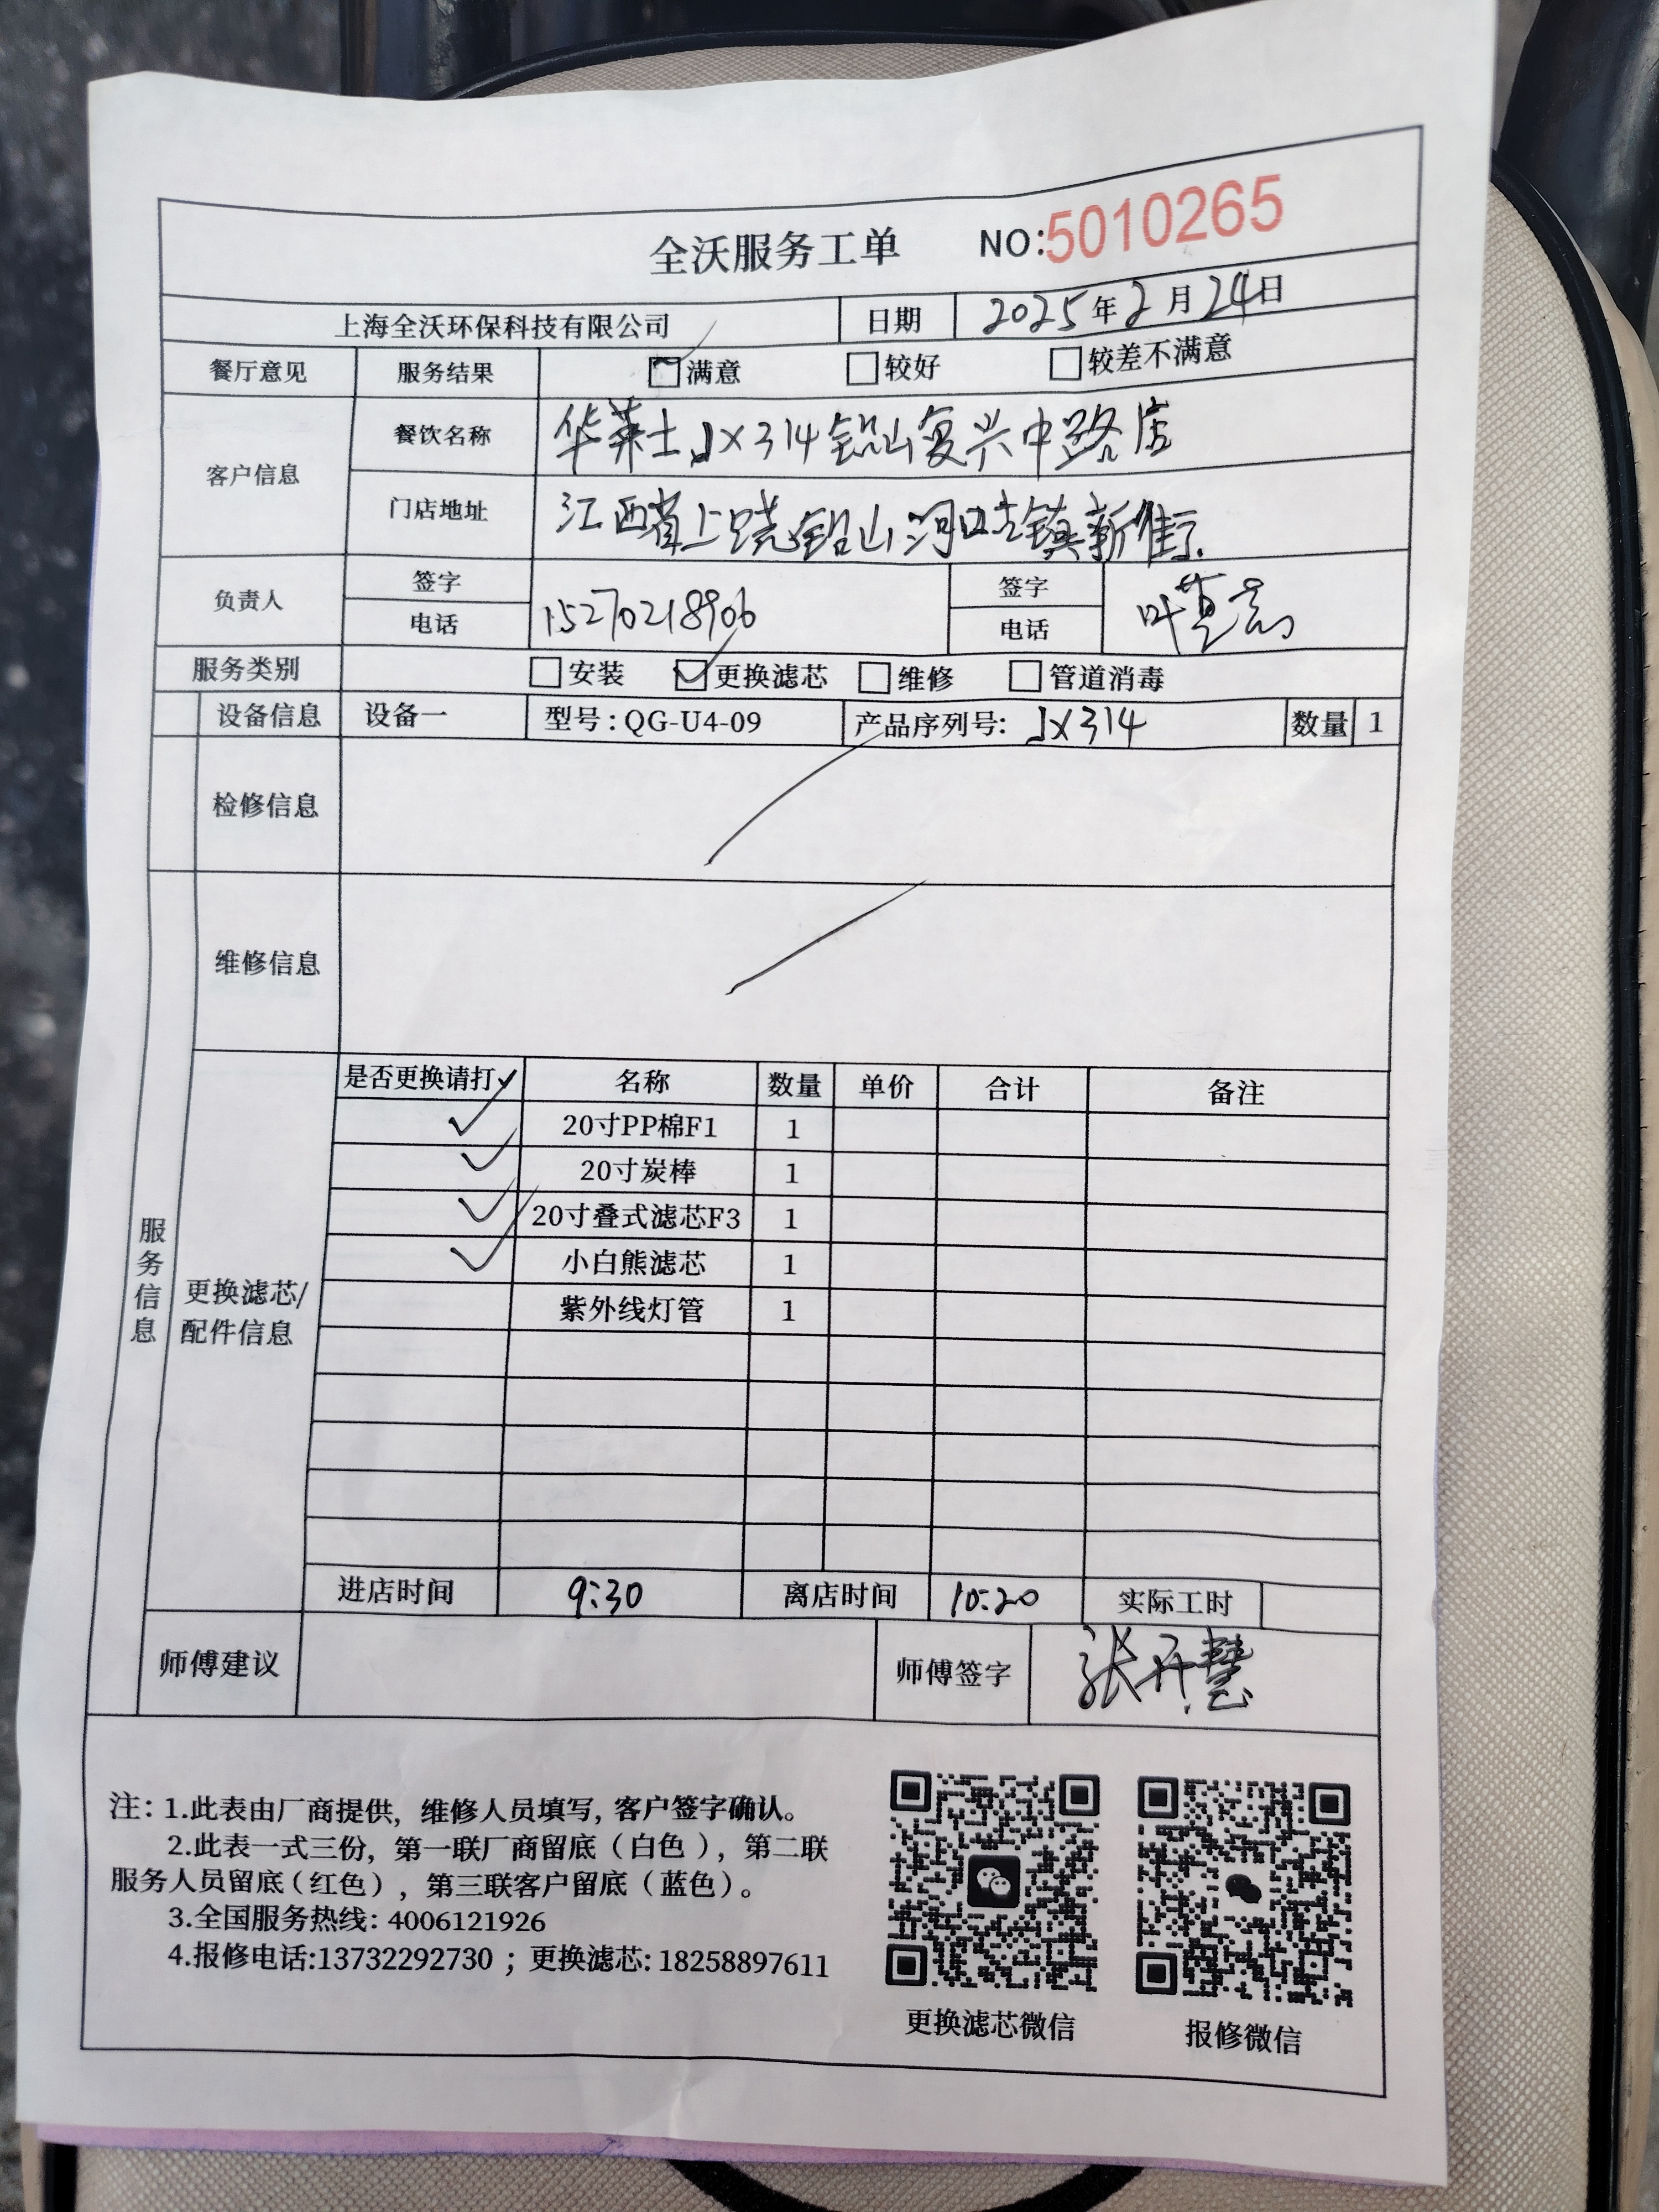 全沃服务工单 NO:5010265
上海全沃环保科技有限公司 日期 2025年2月24日
餐厅意见 服务结果 满意 较好 较差不满意
客户信息 餐饮名称 华莱士JX314铅山复兴中路店
门店地址 江西省上饶铅山河口镇新街
负责人 签字 签字
电话 15270218906 电话 叶
服务类别 安装 更换滤芯 维修 管道消毒
设备信息 设备一 型号:QG-U4-09 产品序列号: JX314 数量 1
检修信息
维修信息
服务信息
更换滤芯/
配件信息
是否更换请打✓ 名称 数量 单价 合计 备注
✓ 20寸PP棉F1 1
✓ 20寸炭棒 1
✓ 20寸叠式滤芯F3 1
✓ 小白熊滤芯 1
紫外线灯管 1
进店时间 9:30 离店时间 10:20 实际工时
师傅建议 师傅签字 张开慧
注: 1.此表由厂商提供, 维修人员填写, 客户签字确认。
2.此表一式三份, 第一联厂商留底(白色), 第二联
服务人员留底(红色), 第三联客户留底(蓝色)。
3.全国服务热线: 4006121926
4.报修电话:13732292730 ; 更换滤芯: 18258897611
更换滤芯微信 报修微信